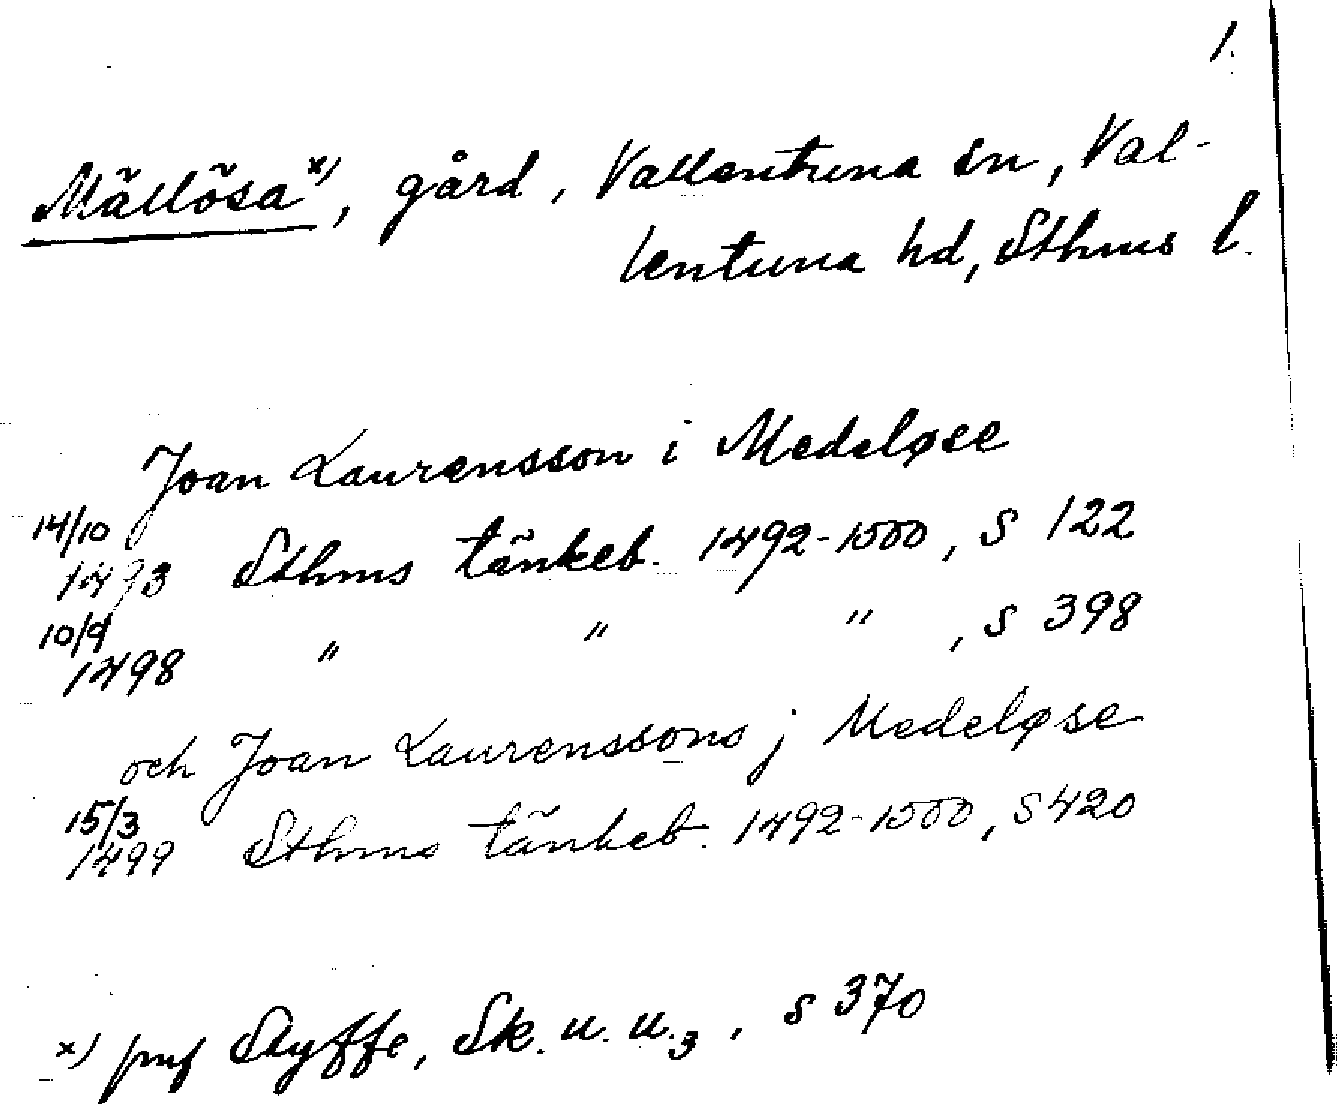 1.
Mällösa x), gård, Vallentuna sn, Val-
lentuna hd, Sthms l.
Joan Laurensson i Medeløse
14/10
1493 Sthms tänkeb. 1492-1500, s 122
10/9
1498 " " " , s 398
och Joan Laurenssons j Medeløse
15/3
1499 Sthms tänkeb. 1492-1500, s 420
x) jmf Styffe, Sk. u. u.3, s 370